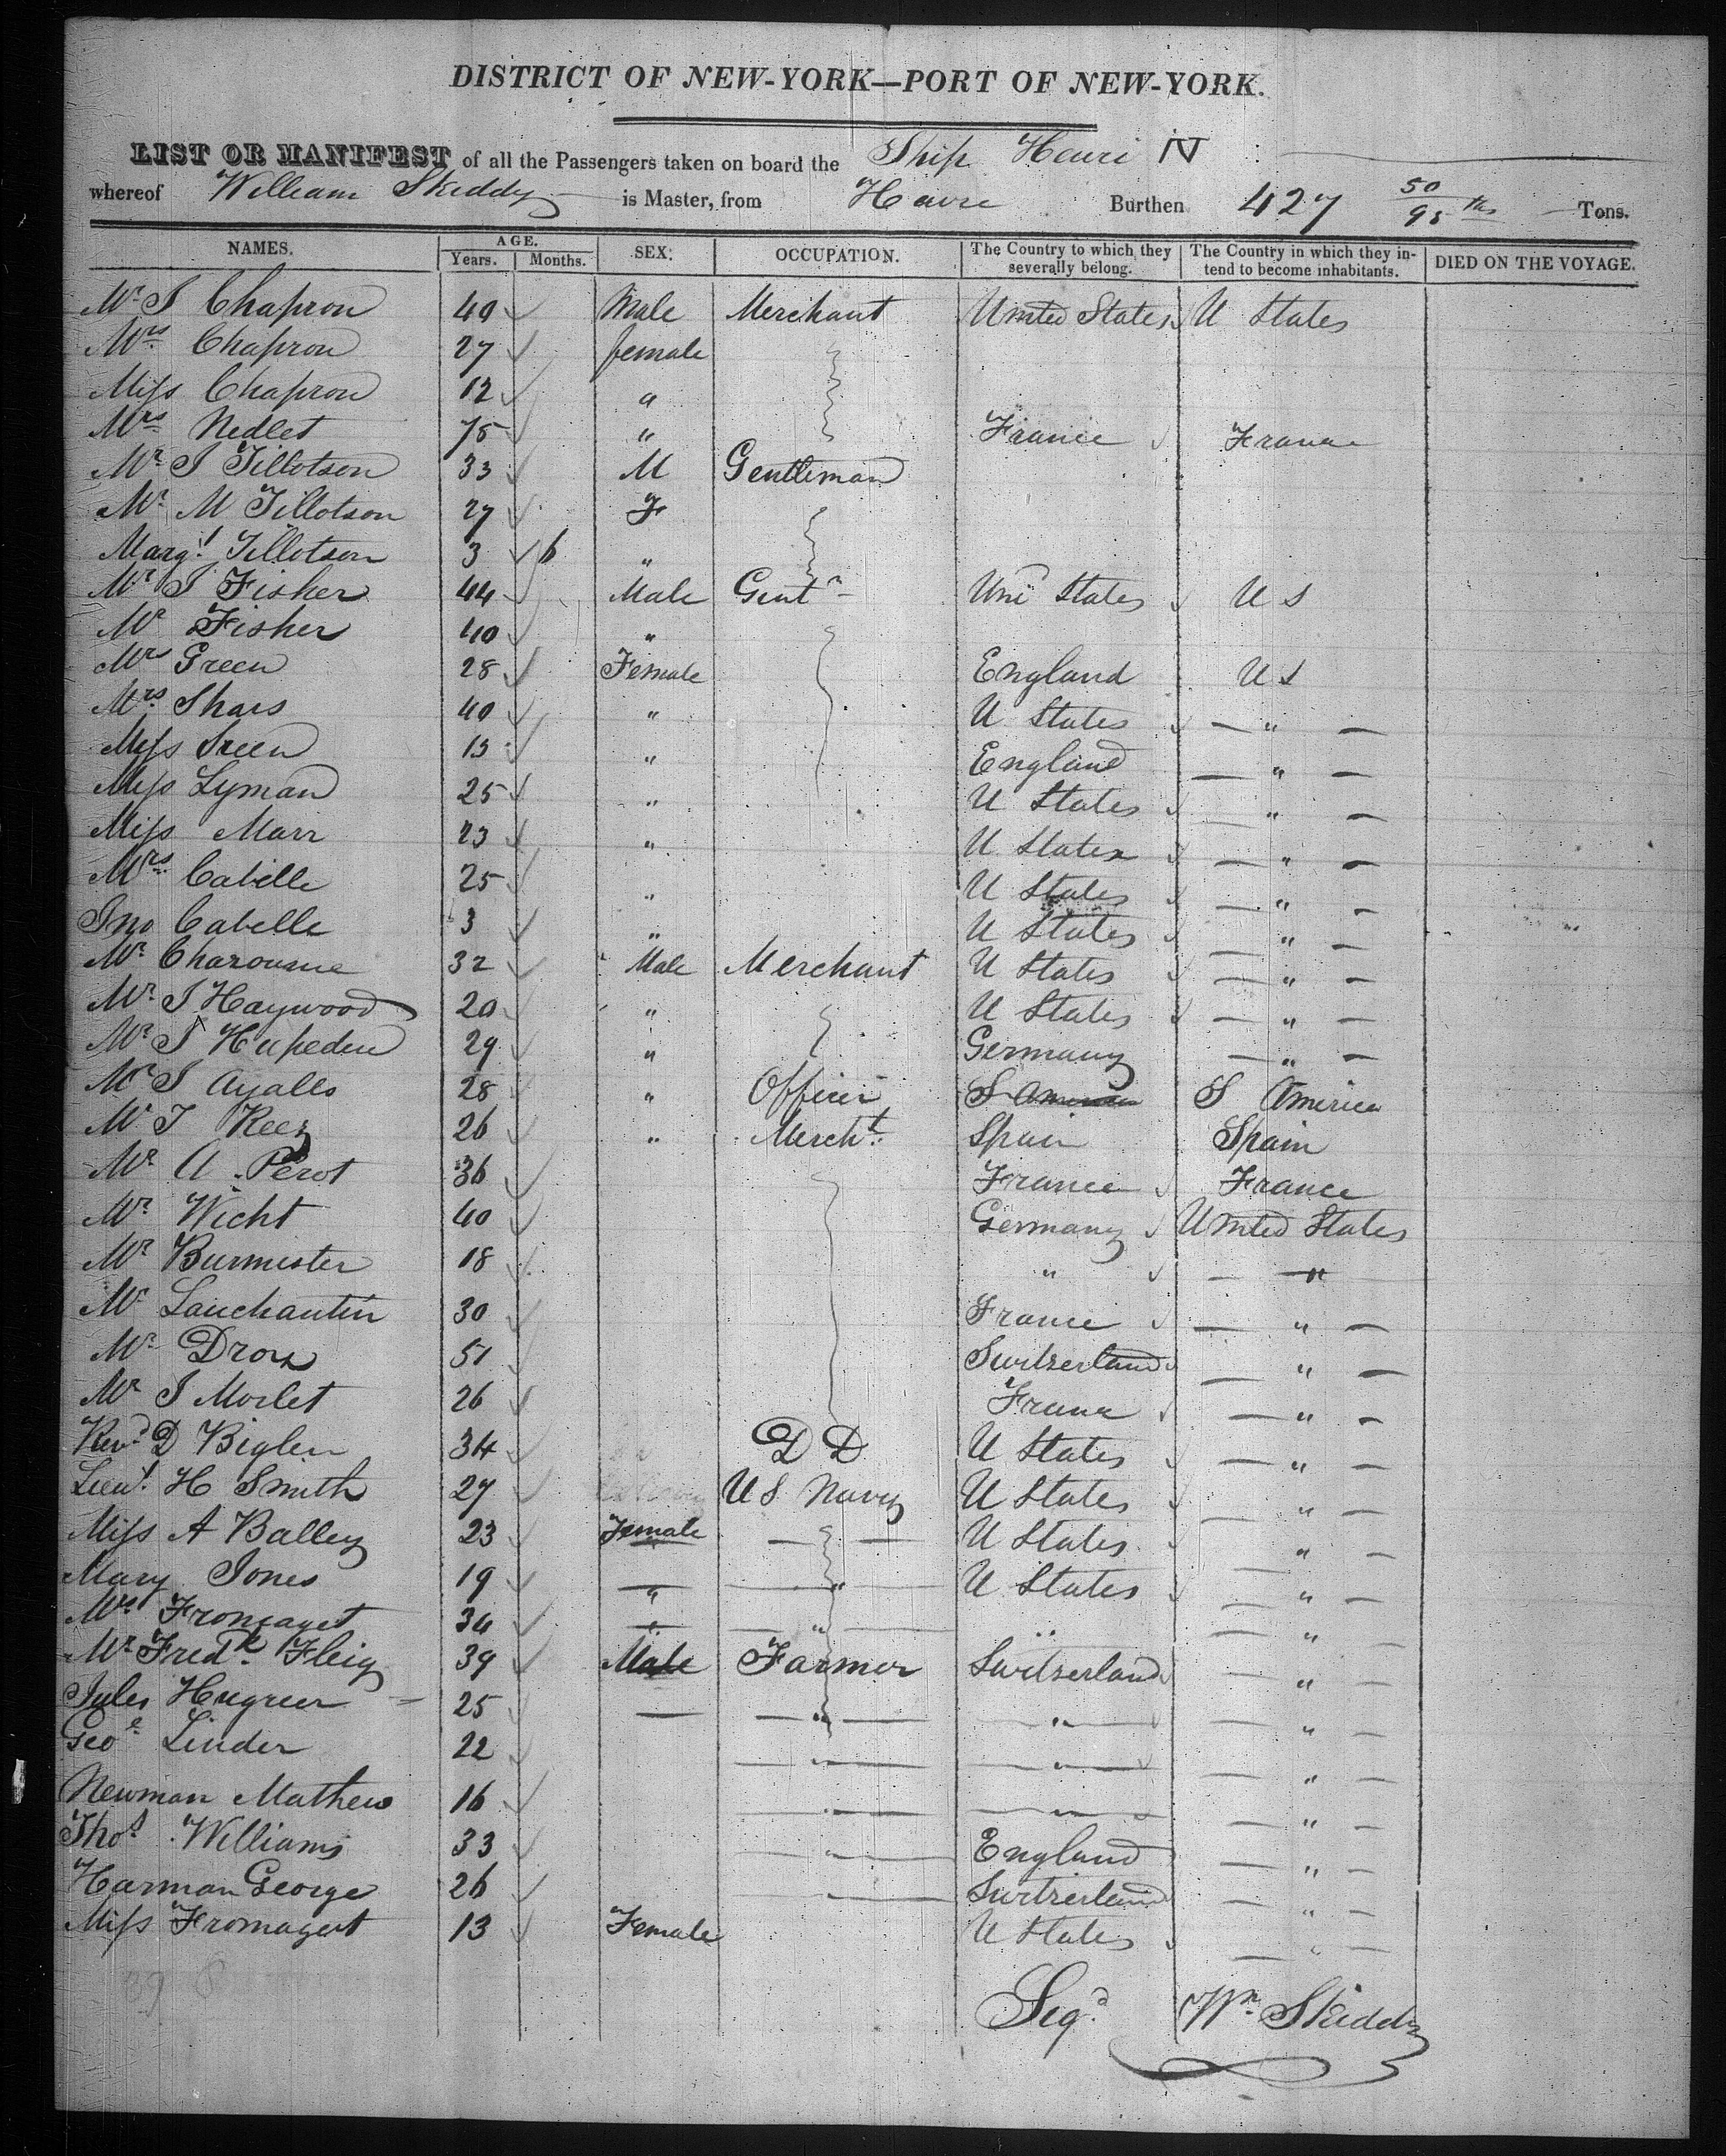 DISTRICT OF NEW-YORK—PORT OF NEW-YORK.
LIST OR MANIFEST of all the Passengers taken on board the Ship Henri IV
whereof William Skiddy is Master, from Havre Burthen 427 50/95 ths Tons.
NAMES. AGE. Years. Months. SEX. OCCUPATION. The Country to which they severally belong. The Country in which they intend to become inhabitants. DIED ON THE VOYAGE.
Mr J Chapron 40 Male Merchant United States U States
Mrs Chapron 27 female
Miss Chapron 12 "
Mrs Nedlet 75 " France France
Mr J Tillotson 33 M Gentleman
Mr M Tillotson 27 F
Margt Tillotson 3 6 "
Mr J Fisher 44 Male Gentn Uni States U S
Mr Fisher 40 "
Mrs Green 28 Female England U S
Mrs Shars 40 " U States — " —
Miss Green 13 " England — " —
Miss Lyman 25 " U States — " —
Miss Marr 23 " U States — " —
Mrs Cabelle 25 " U States — " —
Jno Cabelle 3 " U States — " —
Mr 32 Male Merchant U States — " —
Mr J Haywood 20 " U States — " —
Mr J Hupeden 29 " Germany — " —
Mr J Ayalls 28 " Officer S America S America
Mr J Keez 26 " Mercht Spain Spain
Mr A. Perot 36 France France
Mr Wicht 40 Germany United States
Mr Burmester 18 " — " —
Mr Lanchantin 30 France — " —
Mr Droz 51 Switzerland — " —
Mr J Morlet 26 France — " —
Revd D Biglen 34 D D U States — " —
Lieut H Smith 27 U S Navy U States — " —
Miss A Balley 23 Female — — U States — " —
Mary Jones 19 — " — " — U States — " —
Mrs Fromaget 34 — " — " — " — " —
Mr Fredk Fleig 39 Male Farmer Switzerland — " —
Jules Hugreer — 25 — — " — — " — — " —
Geoe Linder 22 — " — — " — — " —
Newman Mathew 16 — " — — " — — " —
Thos Williams 33 — " — England — " —
Harman George 26 — " — Switzerland — " —
Miss Fromaget 13 Female U States — " —
39 P
Sigd Wm Skiddy